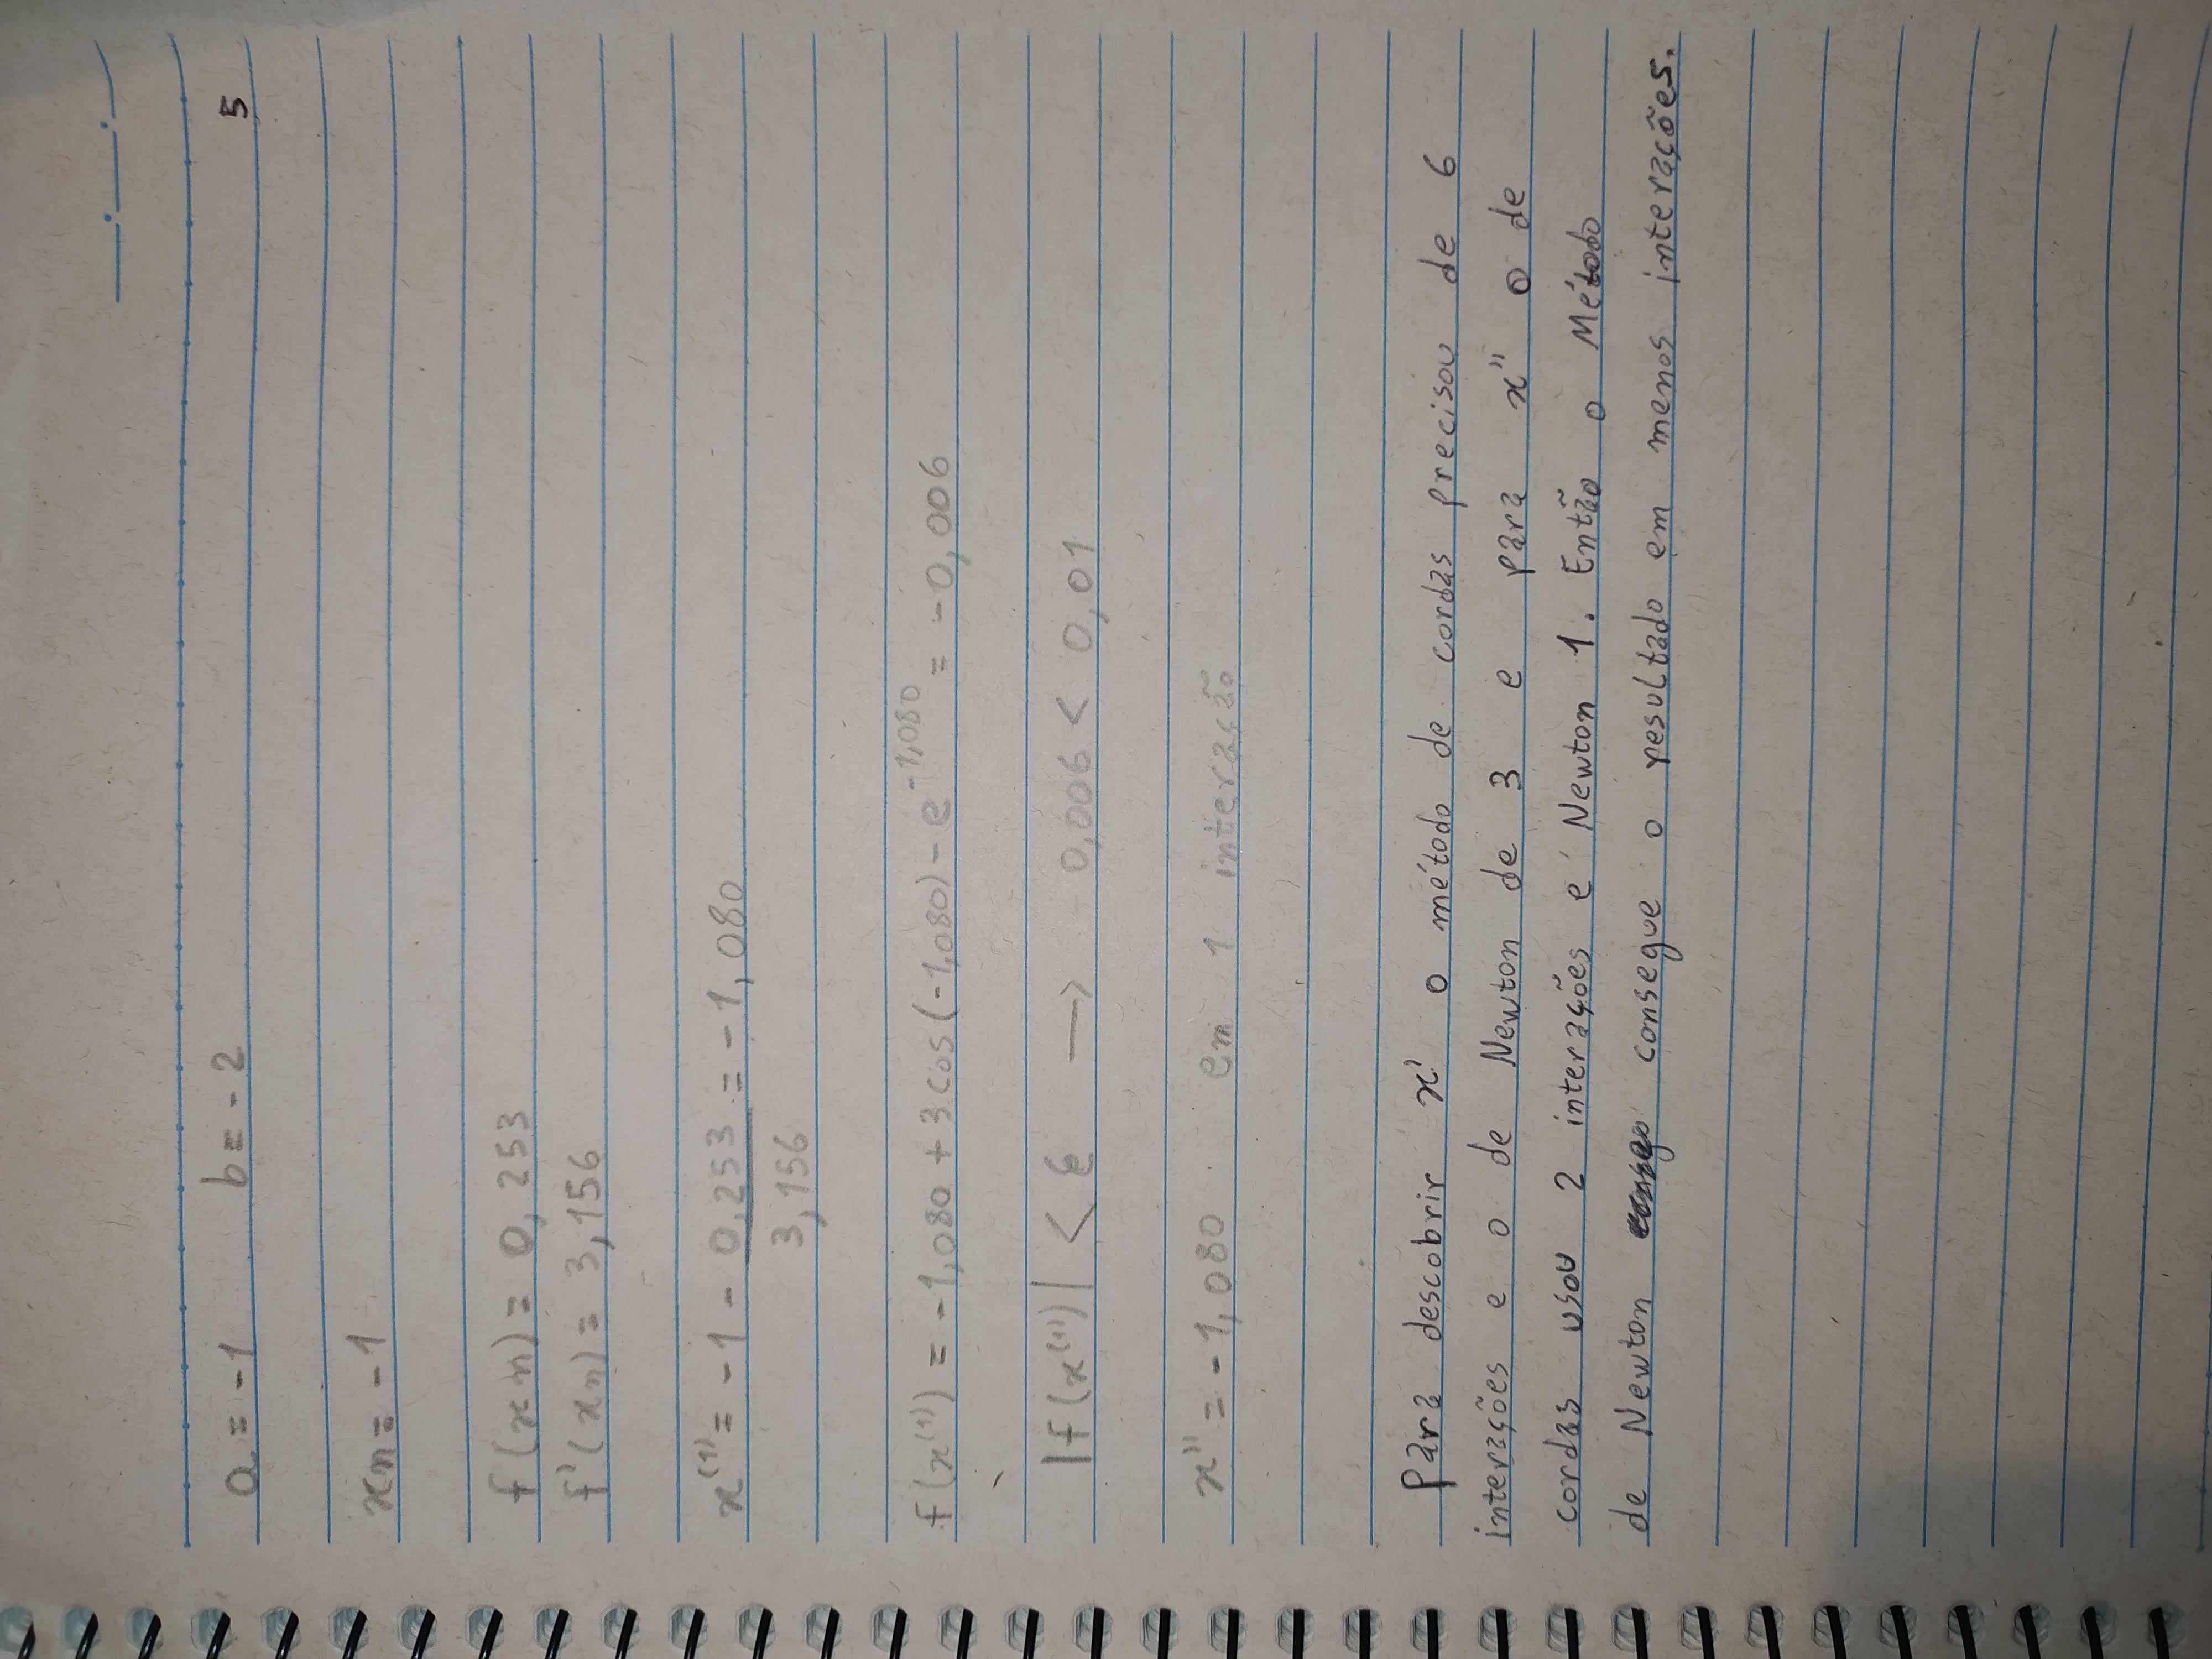 a = -1 b = -2 5
xn = -1
f(xn) = 0,253
f'(xn) = 3,156
x⁽¹⁾ = -1 - 0,253 = -1,080
3,156
f(x⁽¹⁾) = -1,080 + 3cos(-1,080) - e^-1,080 = -0,006
|f(x⁽¹⁾)| < ε → 0,006 < 0,01
x'' = -1,080 em 1 interação
Para descobrir x' o método de cordas precisou de 6
interações e o de Newton de 3 e para x'' o de
cordas usou 2 interações e Newton 1. Então o Método
de Newton consegue o resultado em menos interações.